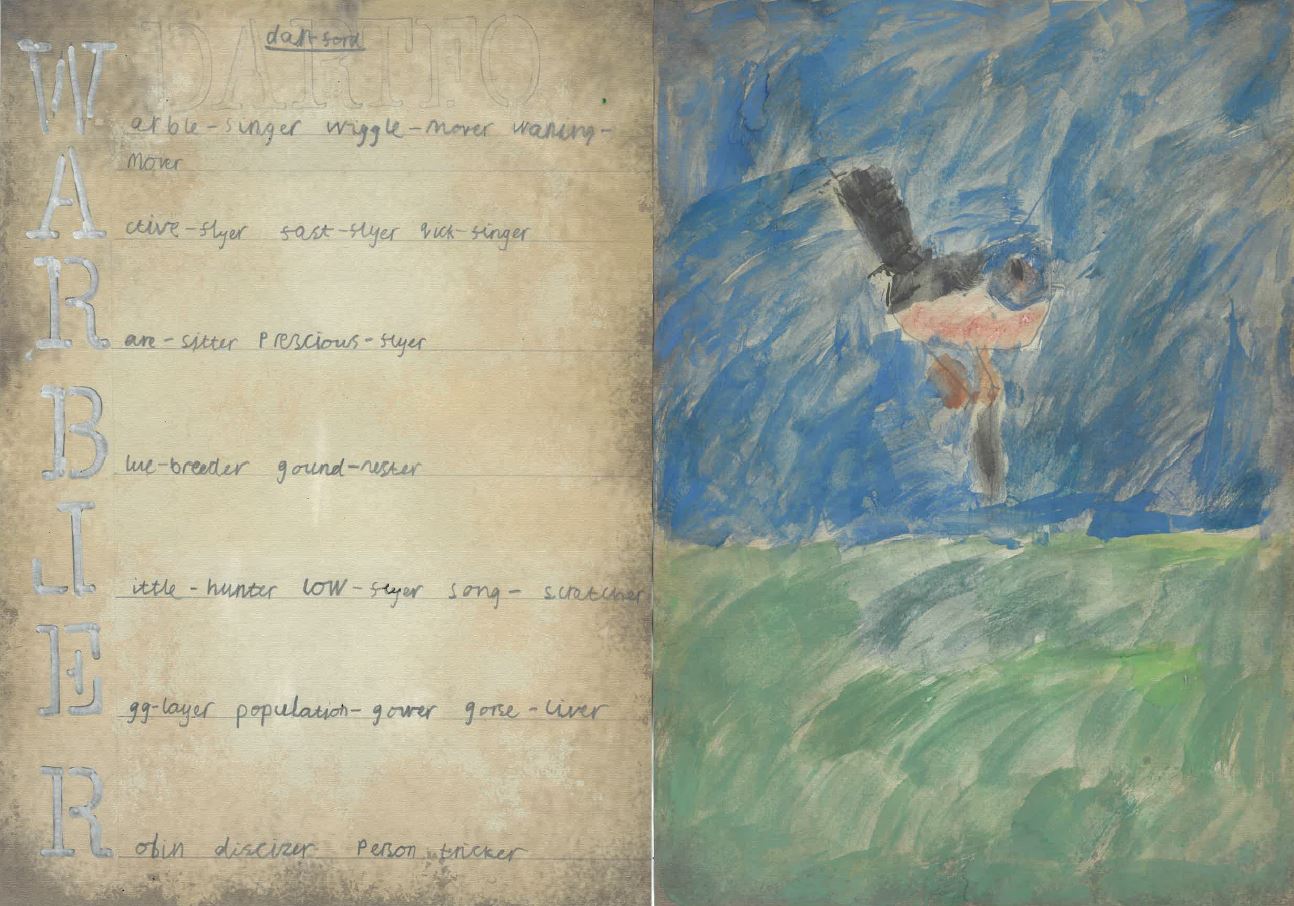 DARTFO
dartford
Warble-singer wiggle-mover waning-
mover
Active-flyer fast-flyer qick-singer
Rare-sitter Prescious-flyer
Blue-breeder gound-nester
Little-hunter LOW-flyer song-scratcher
Egg-layer population-gower gorse-liver
Robin discizer Person tricker